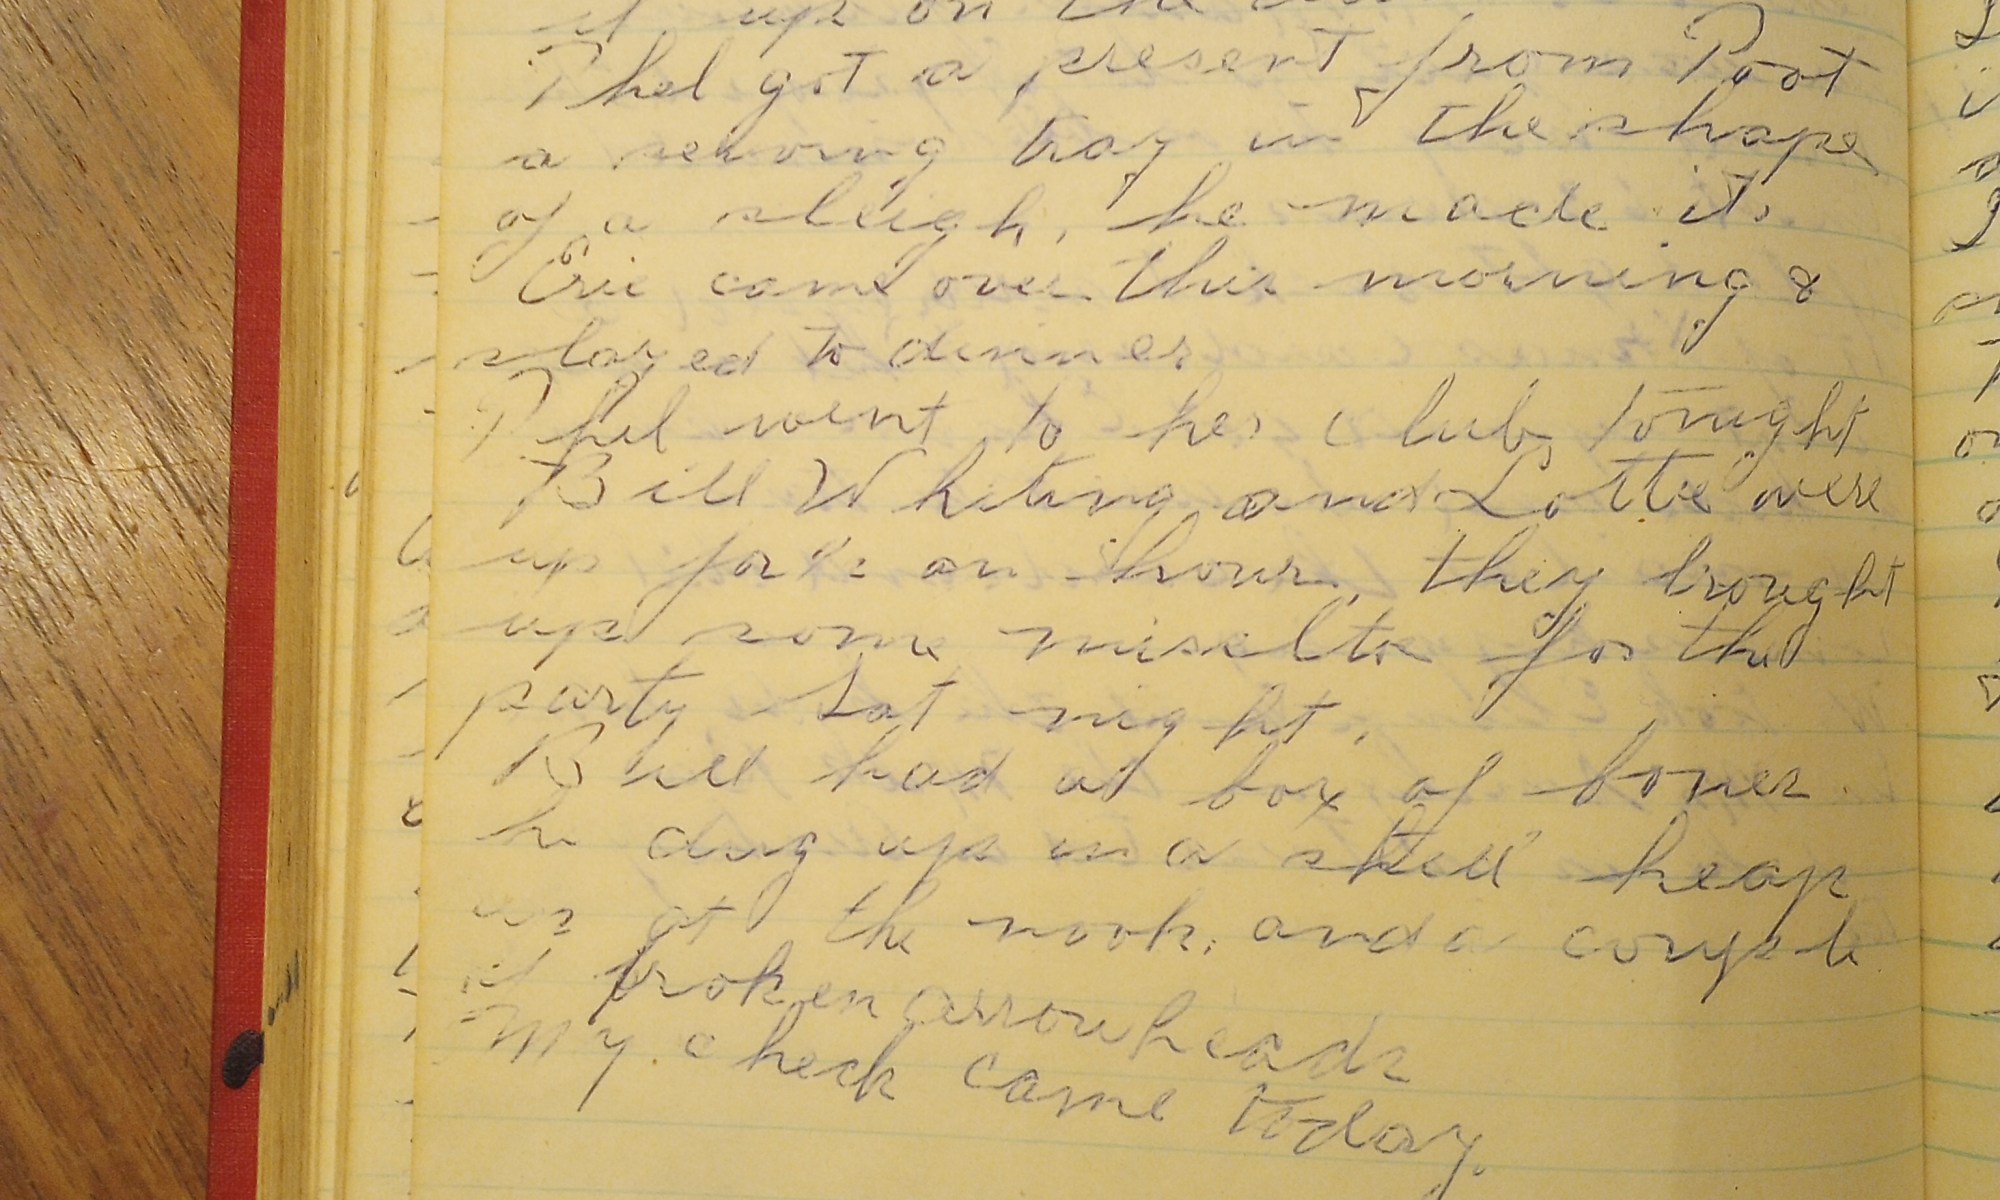 it up on the
Phel got a present from Poot
a serving tray in the shape
of a sleigh, he made it.
Eric came over this morning &
stayed to dinner
Phel went to her club tonight
Bill Whiting and Lottie were
up for an hour, they brought
up some miseltoe for the
party Sat night.
Bill had a box of bones
he dug up in a shell heap
at the nook, and a couple
of broken arrowheads
My check came today.